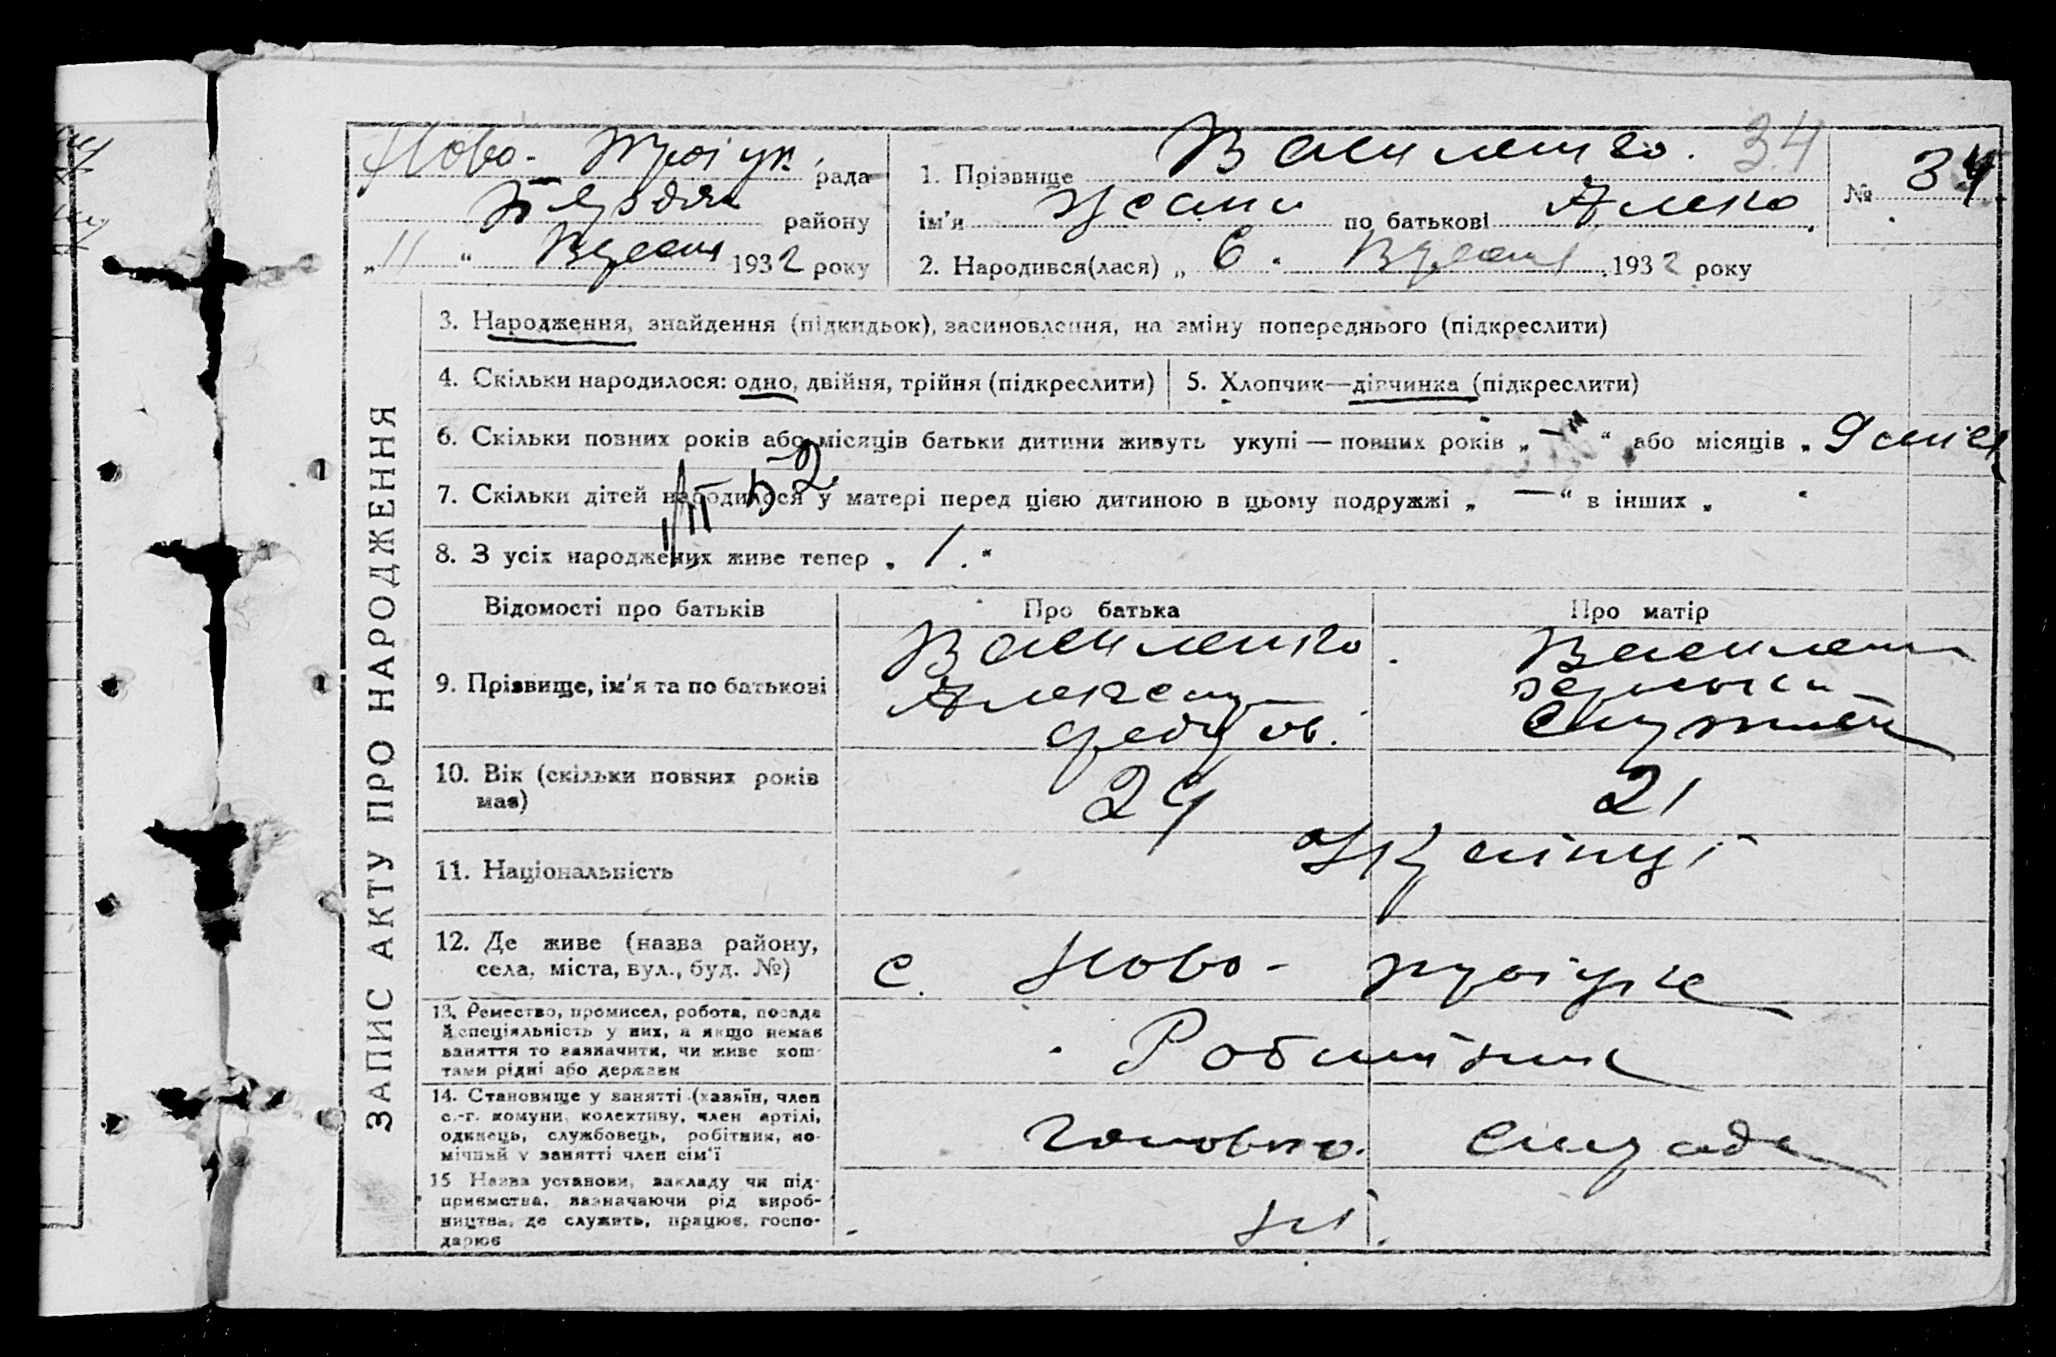 Ново-Троїцк. рада
Бердян району
„11“ Вересня 1932 року
1. Прізвище Василенко. 34
ім'я по батькові Алекс
№ 34
2. Народився(лася) „6“ Вересня 1932 року
ЗАПИС АКТУ ПРО НАРОДЖЕННЯ
3. Народження, знайдення (підкидьок), засиновлення, на зміну попереднього (підкреслити)
4. Скільки народилося: одно, двійня, трійня (підкреслити)
5. Хлопчик—дівчинка (підкреслити)
6. Скільки повних років або місяців батьки дитини живуть укупі — повних років „—“ або місяців „ 9 місяц
7. Скільки дітей народилося у матері перед цією дитиною в цьому подружжі „—“ в інших „ “
8. З усіх народжених живе тепер „1.“
Відомості про батьків
Про батька
Про матір
9. Прізвище, ім'я та по батькові
Василенко
Александ
Федоров.
Василенк
10. Вік (скільки повних років
має)
29
21
11. Національність
Українці
12. Де живе (назва району,
села, міста, вул., буд. №)
с. Ново-Троїцке
13. Ремество, промисел, робота, посада
й спеціяльність у них, а якщо немає
заняття то зазначити, чи живе кош-
тами рідні або держави
Робітник
14. Становище у занятті (хазяїн, член
с.-г. комуни, колективу, член артілі,
одинець, службовець, робітник, по-
мічний у занятті член сім'ї
15 Назва установи, закладу чи під-
приємства, зазначаючи рід вироб-
ництва, де служить, працює, госпо-
дарює